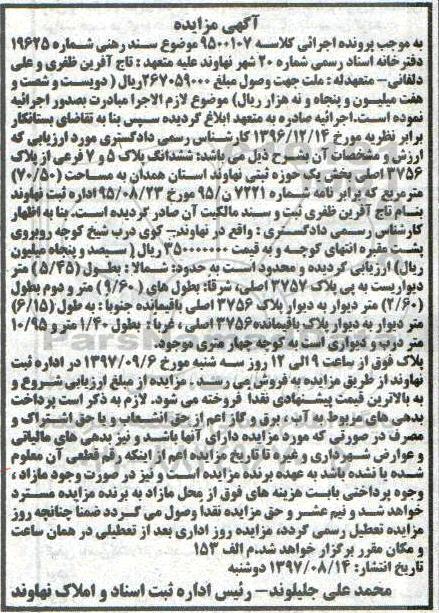 آگهی مزایده
به موجب پرونده اجرائی کلاسه ۹۵۰۰۱۰۷ موضوع سند رهنی شماره ۱۹۶۲۵
دفترخانه اسناد رسمی شماره ۲۰ شهر نهاوند علیه متعهد : تاج آفرین ظفری و علی
دلفانی- متعهدله : ملت جهت وصول مبلغ ۲۶۷۰۵۹۰۰۰ریال (دویست و شصت و
هفت میلیون و پنجاه و نه هزار ریال) موضوع لازم الاجرا مبادرت بصدور اجرائیه
نموده است.اجرائیه صادره به متعهد ابلاغ گردیده سپس بنا به تقاضای بستانکار
برابر نظریه مورخ ۱۳۹۶/۱۲/۱۴ کارشناس رسمی دادگستری مورد ارزیابی که
ارزش و مشخصات آن بشرح ذیل می باشد: ششدانگ پلاک ۵ و ۷ فرعی از پلاک
۳۷۵۶ اصلی بخش یک حوزه ثبتی نهاوند استان همدان به مساحت (۷۰/۵۰)
متر مربع که برابر نامه شماره ۷۲۲۱ ن/۹۵ مورخ ۹۵/۰۸/۲۳ اداره ثبت نهاوند
بنام تاج آفرین ظفری ثبت و سند مالکیت آن صادر گردیده است. بنا به اظهار
کارشناس رسمی دادگستری : واقع در نهاوند- کوی درب شیخ کوچه روبروی
پشت مقبره انتهای کوچه و به قیمت ۳۵۰۰۰۰۰۰۰ ریال ( سیصد و پنجاه میلیون
ریال) ارزیابی گردیده و محدود است به حدود: شمالا : بطول (۵/۴۵) متر
دیواریست به پی پلاک ۳۷۵۷ اصلی، شرقا: بطول های (۹/۶۰) متر و دوم بطول
(۲/۶۰) متر دیوار به دیوار پلاک ۳۷۵۶ اصلی باقیمانده جنوبا : به طول (۶/۱۵)
متر دیوار به دیوار پلاک باقیمانده۳۷۵۶ اصلی ، غربا : بطول ۱/۴۰ متر و ۱۰/۹۵
متر درب و دیواری است به کوچه چهار متری موجود.
پلاک فوق از ساعت ۹ الی ۱۲ روز سه شنبه مورخ ۱۳۹۷/۰۹/۶ در اداره ثبت
نهاوند از طریق مزایده به فروش می رسد . مزایده از مبلغ ارزیابی شروع و
به بالاترین قیمت پیشنهادی نقدا فروخته می شود. لازم به ذکر است پرداخت
بدهی های مربوط به آب ، برق و گاز اعم از حق انشعاب و یا حق اشتراک و
مصرف در صورتی که مورد مزایده دارای آنها باشد و نیز بدهی های مالیاتی
و عوارض شهرداری و غیره تا تاریخ مزایده اعم از اینکه رقم قطعی آن معلوم
شده یا نشده باشد به عهده برنده مزایده است و نیز در صورت وجود مازاد ،
وجوه پرداختی بابت هزینه های فوق از محل مازاد به برنده مزایده مسترد
خواهد شد و نیم عشر و حق مزایده نقدا وصول می گردد ضمنا چنانچه روز
مزایده تعطیل رسمی گردد، مزایده روز اداری بعد از تعطیلی در همان ساعت
و مکان مقرر برگزار خواهد شد.م الف ۱۵۳
تاریخ انتشار: ۱۳۹۷/۰۸/۱۴ دوشنبه
محمد علی جلیلوند- رئیس اداره ثبت اسناد و املاک نهاوند